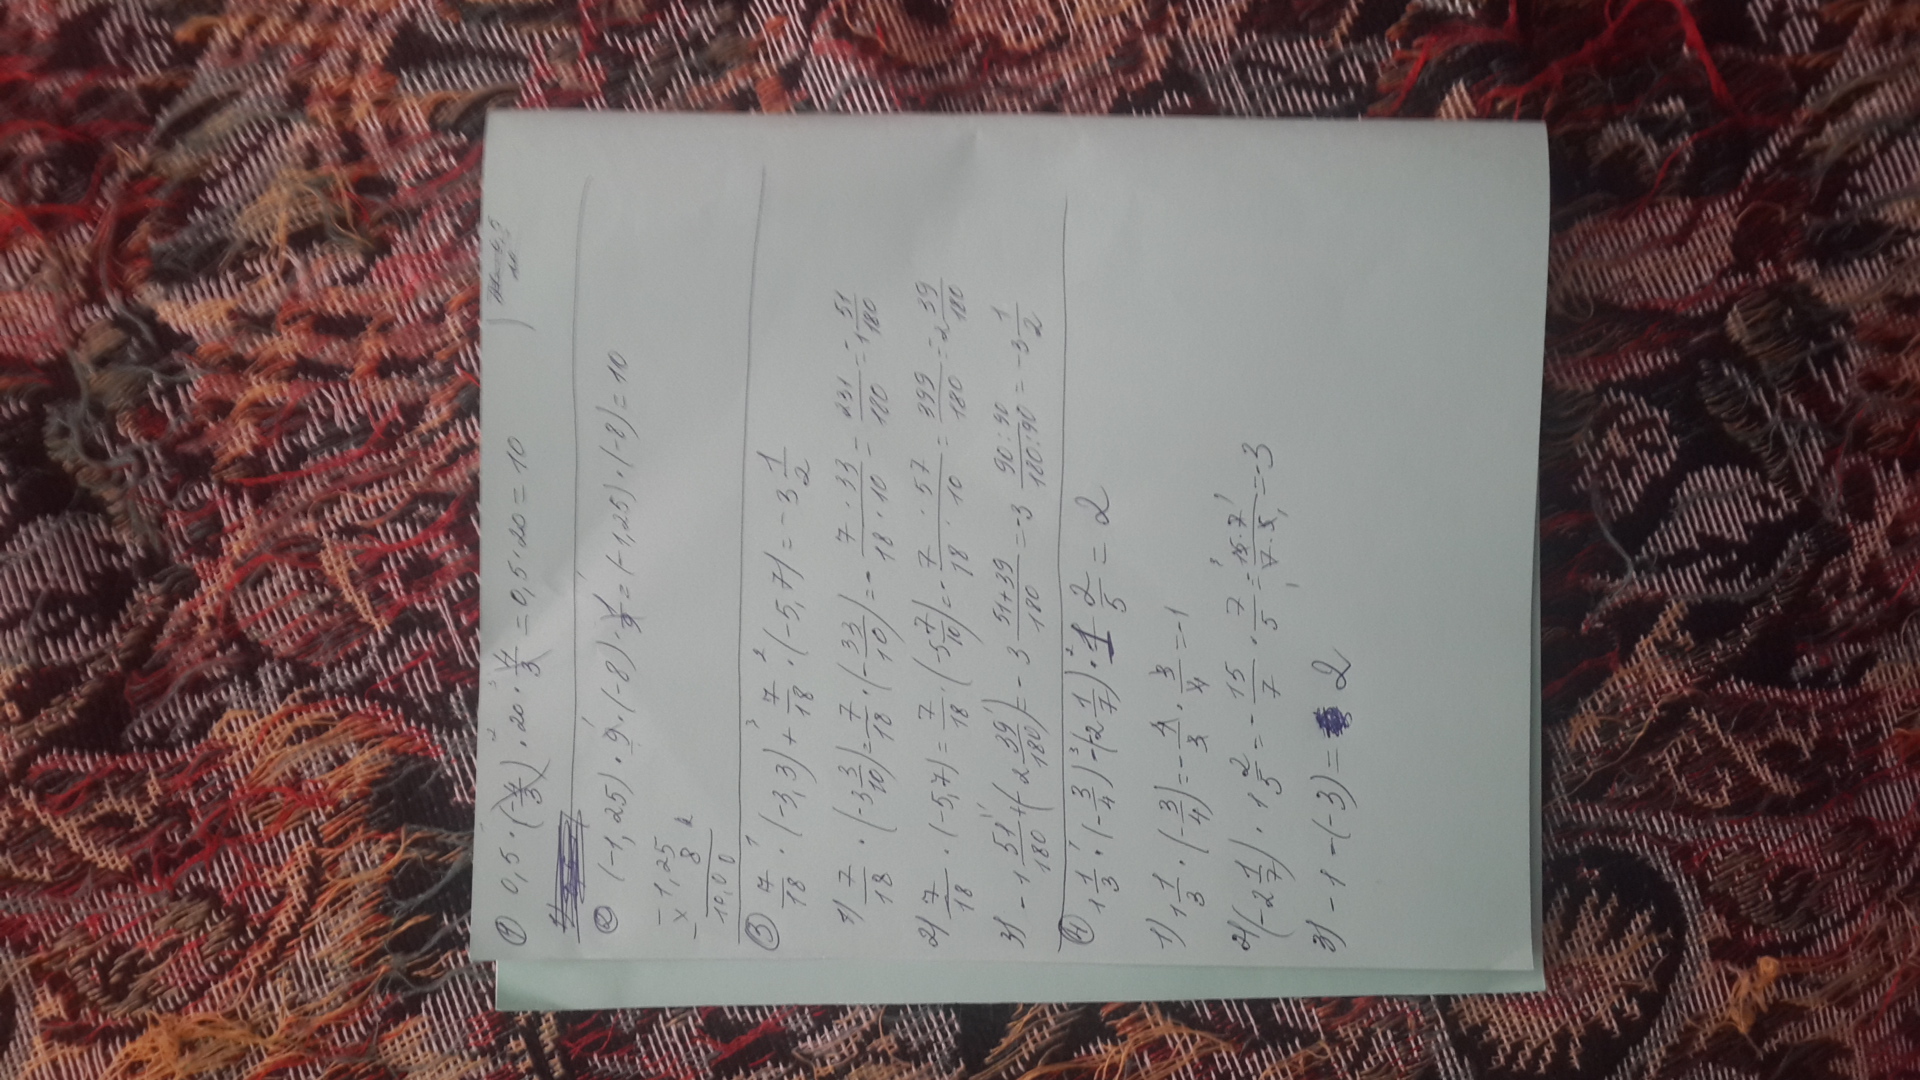 ① 0,5 · (-4/3) · 20 · 4/3 = 0,5 · 20 = 10
② (-1,25) · 9 · (-8) · 1/9 = (-1,25) · (-8) = 10
× 1,25
8
10,00
③ 7/18 · (-3,3) + 7/18 · (-5,7) = -3 1/2
1) 7/18 · (-3 3/10) = 7/18 · (-33/10) = - 7 · 33/18 · 10 = 231/180 = -1 51/180
2) 7/18 · (-5,7) = 7/18 · (-5 7/10) = - 7/18 · 57/10 = 399/180 = 2 39/180
3) -1 51/180 + (-2 39/180) = -3 51+39/180 = -3 90:90/180:90 = -3 1/2
④ 1 1/3 · (-3/4) - (-2 1/7) · 1 2/5 = 2
1) 1 1/3 · (-3/4) = - 4/3 · 3/4 = -1
2) (-2 1/7) · 1 2/5 = - 15/7 · 7/5 = 15 · 7/7 · 5 = -3
3) -1 - (-3) = 2